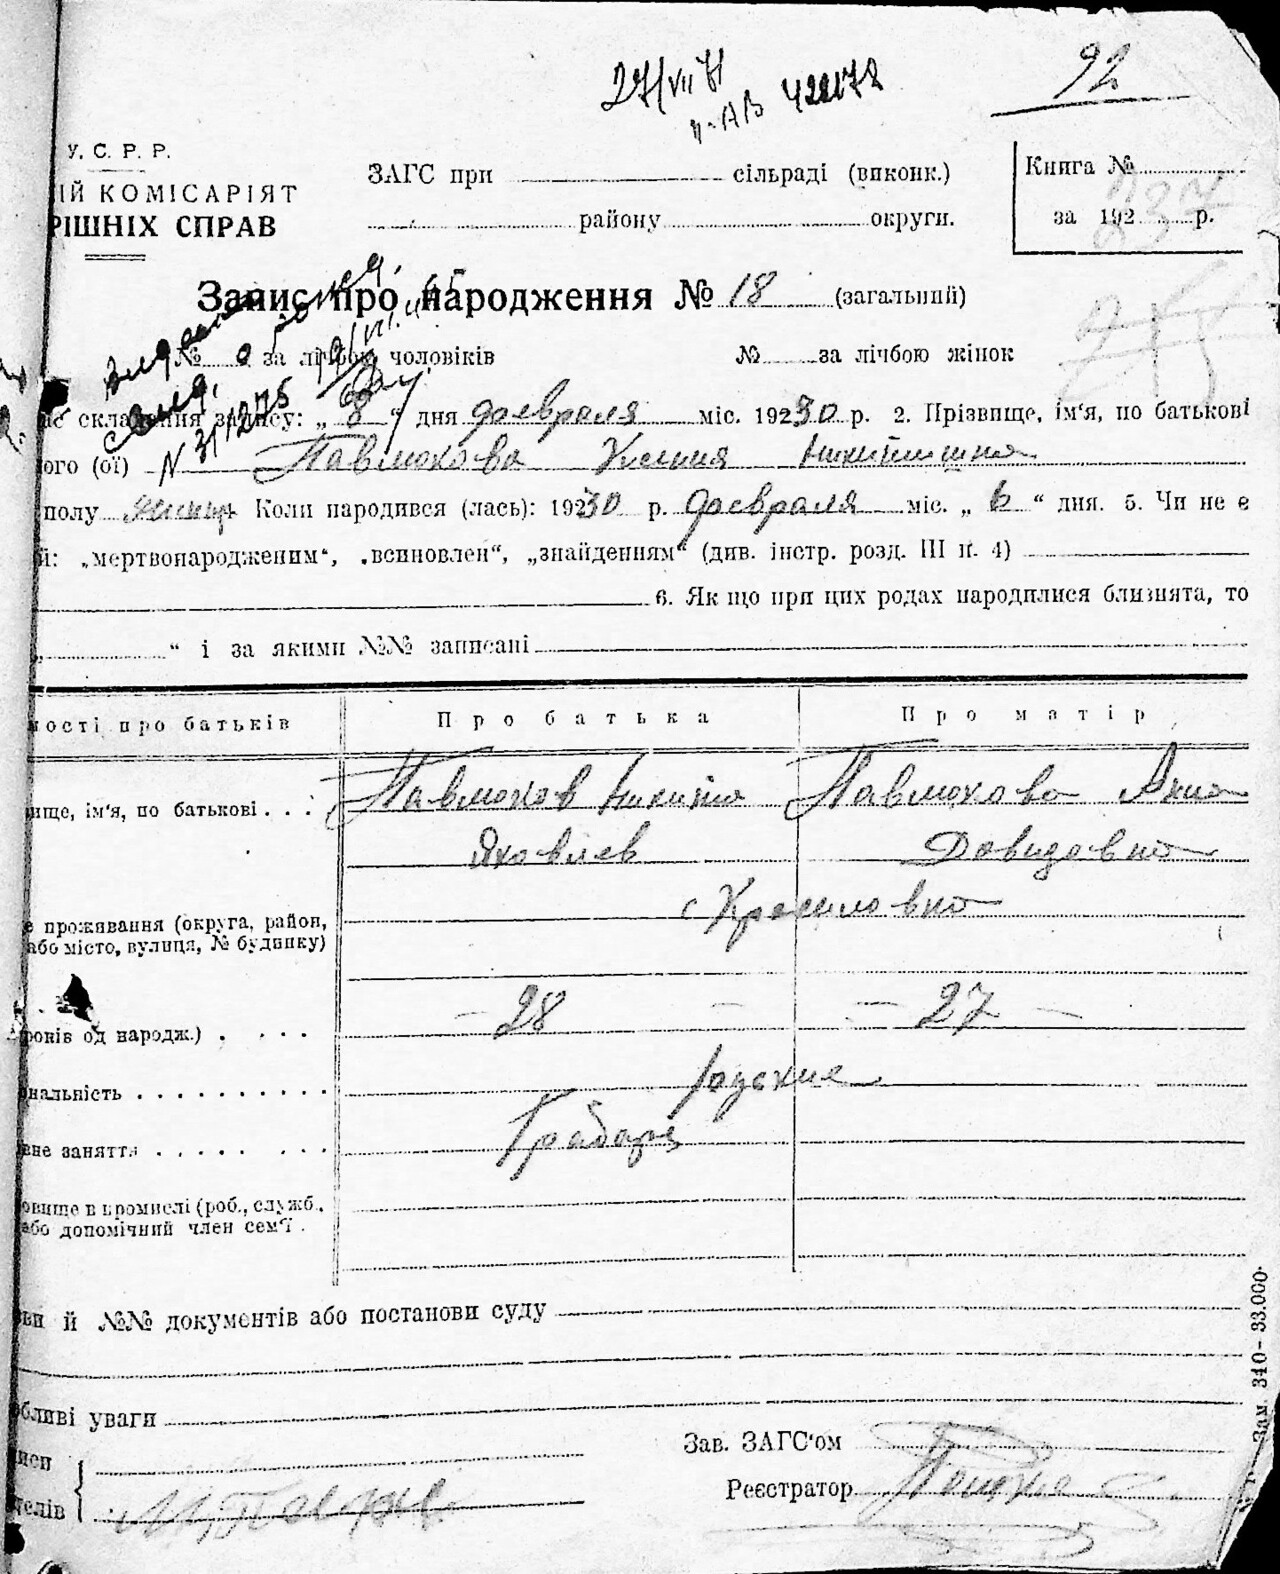 27/VII 71
92
У. С. Р. Р.
ИЙ КОМІСАРІЯТ
РІШНІХ СПРАВ
ЗАГС при сільраді (виконк.)
району округи.
Книга №
за 192 р.
Запис про народження № 18 (загальний)
№ за лічбою чоловіків № за лічбою жінок
N 31/1275
час складання запису: „ 8 “ дня февраля міс. 1930 р. 2. Прізвище, ім'я, по батькові
ого (ої) Павлюкова Ксения Никитишна
полу женск Коли народився (лась): 1930 р. февраля міс. „ 6 “ дня. 5. Чи не є
й: „мертвонародженим“, „всиновлен“, „знайденням“ (див. інстр. розд. III п. 4)
6. Як що при цих родах народилися близнята, то
“ і за якими №№ записані
мості про батьків Про батька Про матір
вище, ім'я, по батькові . . . Павлюков Никита Павлюкова Анна
Яковлев Довидовна
е проживання (округа, район, с Красиловно
або місто, вулиця, № будинку)
років од народж.) . . . . - 28 - - 27 -
ональність . . . . . . . . . . Руские
вне заняття . . . . . . . . Грабарь
овище в промислі (роб., служб.,
або допомічний член сем'ї .
ви й №№ документів або постанови суду
бливі уваги
Зав. ЗАГС'ом
писи
Реєстратор
телів
Зам. 340-33.000.